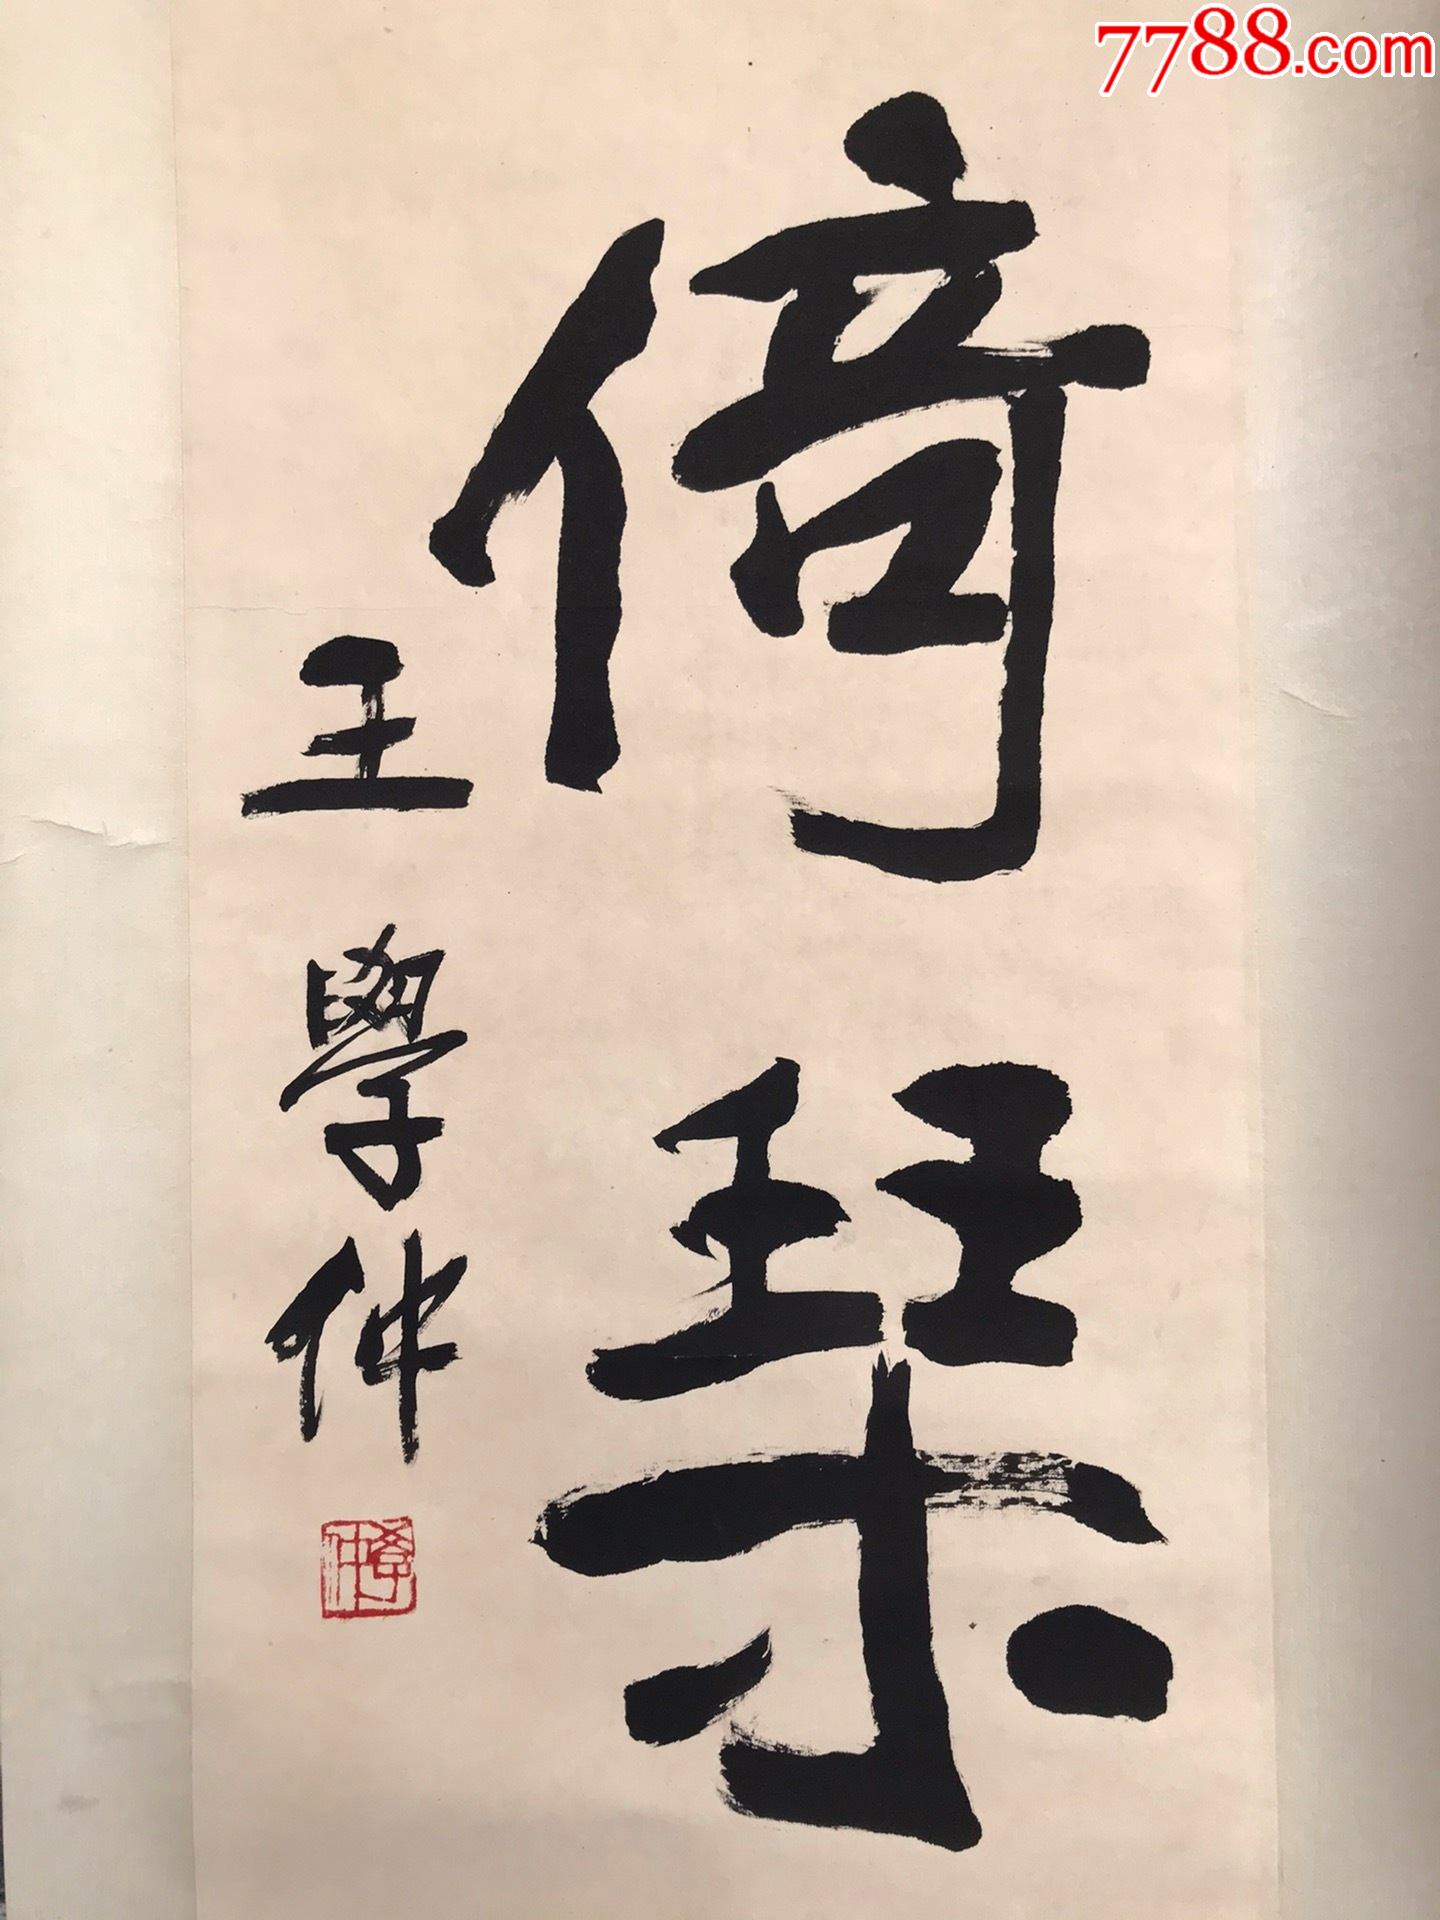 7788.com
倚琹
王學仲